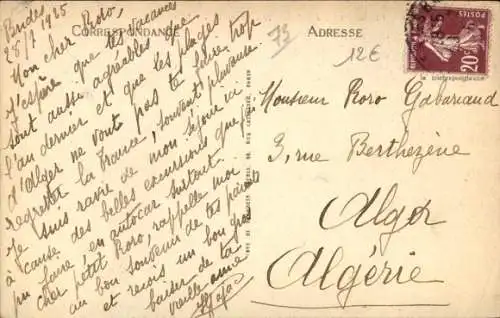 Brides
25/7 1925
CORRESPONDANCE
Mon cher Roro,
J'espère que tes vacances
sont aussi agréables que
l'an dernier et que les plages
d'Alger ne vont pas te faire trop
regretter la France, souvent pluvieuse.
Je suis ravie de mon séjour ici
à cause des belles excursions que j'ai
pu faire, en autocar surtout.
cher petit Roro, rappelle moi
au bon souvenir de tes parents
et reçois un bon gros
baiser de ta
vieille amie
ADRESSE
12€
POSTES
20
Monsieur Roro Gabariaud
3, rue Berthezène
Alger
Algérie